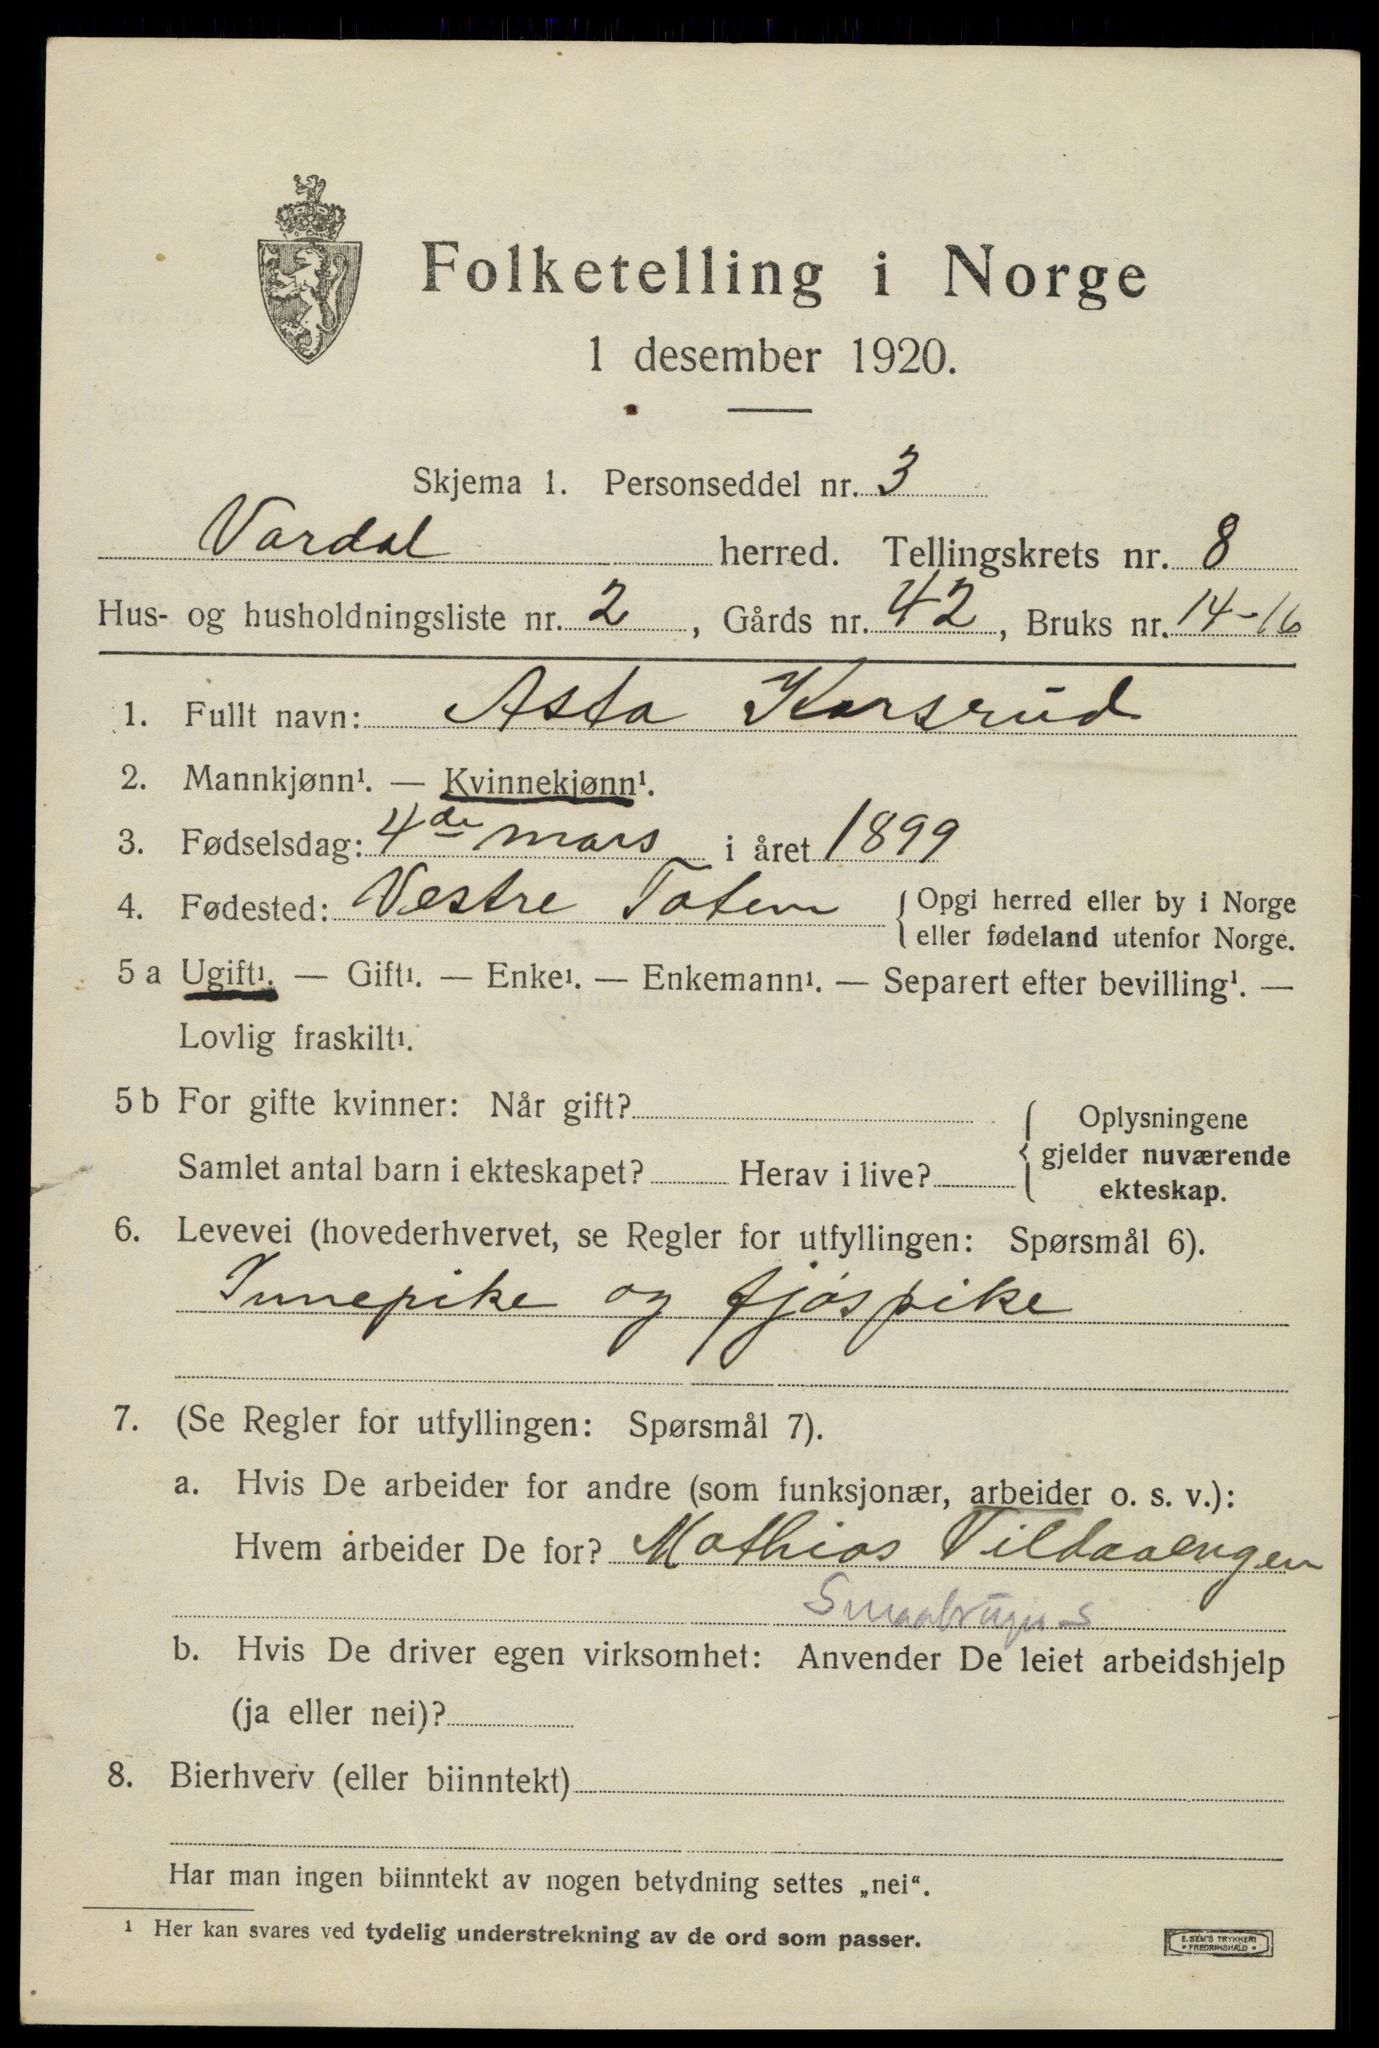 Folketelling i Norge
1 desember 1920.
Skjema 1. Personseddel nr. 3
Vardal herred. Tellingskrets nr. 8
Hus- og husholdningsliste nr. 2, Gårds nr. 42, Bruks nr. 14-16
1. Fullt navn: Asta Korsrud
2. Mannkjønn¹. — Kvinnekjønn¹.
3. Fødselsdag: 4de mars i året 1899
4. Fødested: Vestre Toten { Opgi herred eller by i Norge
eller fødeland utenfor Norge.
5 a Ugift¹. — Gift¹. — Enke¹. — Enkemann¹. — Separert efter bevilling¹. —
Lovlig fraskilt¹.
5 b For gifte kvinner: Når gift?
Samlet antal barn i ekteskapet? Herav i live?
{ Oplysningene
gjelder nuværende
ekteskap.
6. Levevei (hovederhvervet, se Regler for utfyllingen: Spørsmål 6).
Innepike og fjøspike
7. (Se Regler for utfyllingen: Spørsmål 7).
a. Hvis De arbeider for andre (som funksjonær, arbeider o. s. v.):
Hvem arbeider De for? Mathias Vildaaengen
b. Hvis De driver egen virksomhet: Anvender De leiet arbeidshjelp
(ja eller nei)?
8. Bierhverv (eller biinntekt)
Har man ingen biinntekt av nogen betydning settes „nei“.
¹ Her kan svares ved tydelig understrekning av de ord som passer.
E. SEM'S TRYKKERI
* FREDRIKSHALD *